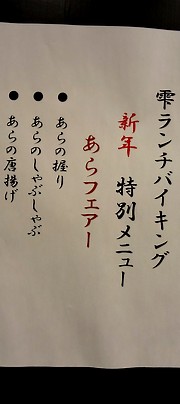 雫ランチバイキング
新年 特別メニュー
あらフェアー
● あらの握り
● あらのしゃぶしゃぶ
● あらの唐揚げ